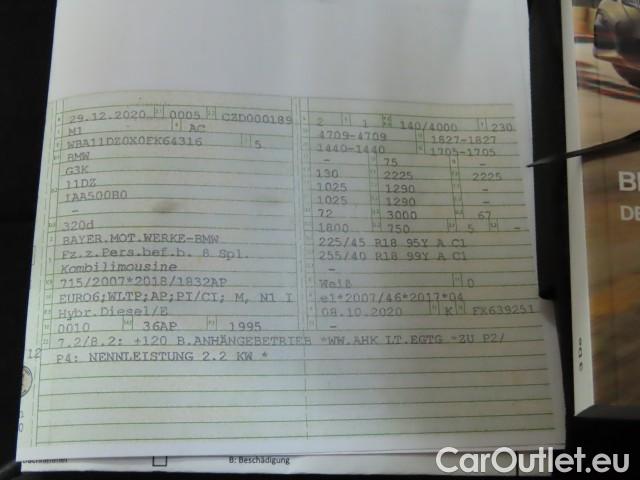 29.12.2020 0005 CZD000189
M1 AC
WBA11DZ0X0FK64316 5
BMW
G3K
11DZ
1AA500B0
-
320d
BAYER.MOT.WERKE-BMW
Fz.z.Pers.bef.b. 8 Spl.
Kombilimousine
715/2007*2018/1832AP
EURO6;WLTP;AP;PI/CI; M, N1 I
Hybr.Diesel/E
0010 36AP 1995
2 1 140/4000 230
4709-4709 1827-1827
1440-1440 1705-1705
- 75 -
130 2225 2225
1025 1290 -
1025 1290 -
72 3000 67
1800 750 5 -
225/45 R18 95Y A C1
255/40 R18 99Y A C1
-
Weiß 0
e1*2007/46*2017*04
08.10.2020 K FX639251
-
7.2/8.2: +120 B.ANHÄNGEBETRIEB *WW.AHK LT.EGTG *ZU P2/
P4: NENNLEISTUNG 2.2 KW *
12
B: Beschädigung
CarOutlet.eu